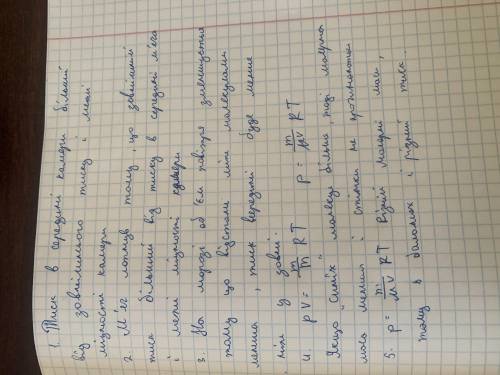 1. Тиск в середині камери більший
від зовнішнього тиску і межі
міцності камери
2. М'яч лопнув тому, що зовнішній
тиск більший від тиску в середині м'яча
і межі міцності камери
3. На морозі об'єм повітря зменшується
тому що відстань між молекулами
менша, тиск всередині буде менше
ніж у зовні.
4. pV = m/M RT p = m/MV RT
Якщо "синіх" молекул більше, тоді молярна
маса менша і стінки не прогинаються
5. p = m/MV RT Різній молярній масі,
тому в балонах і різний тиск.